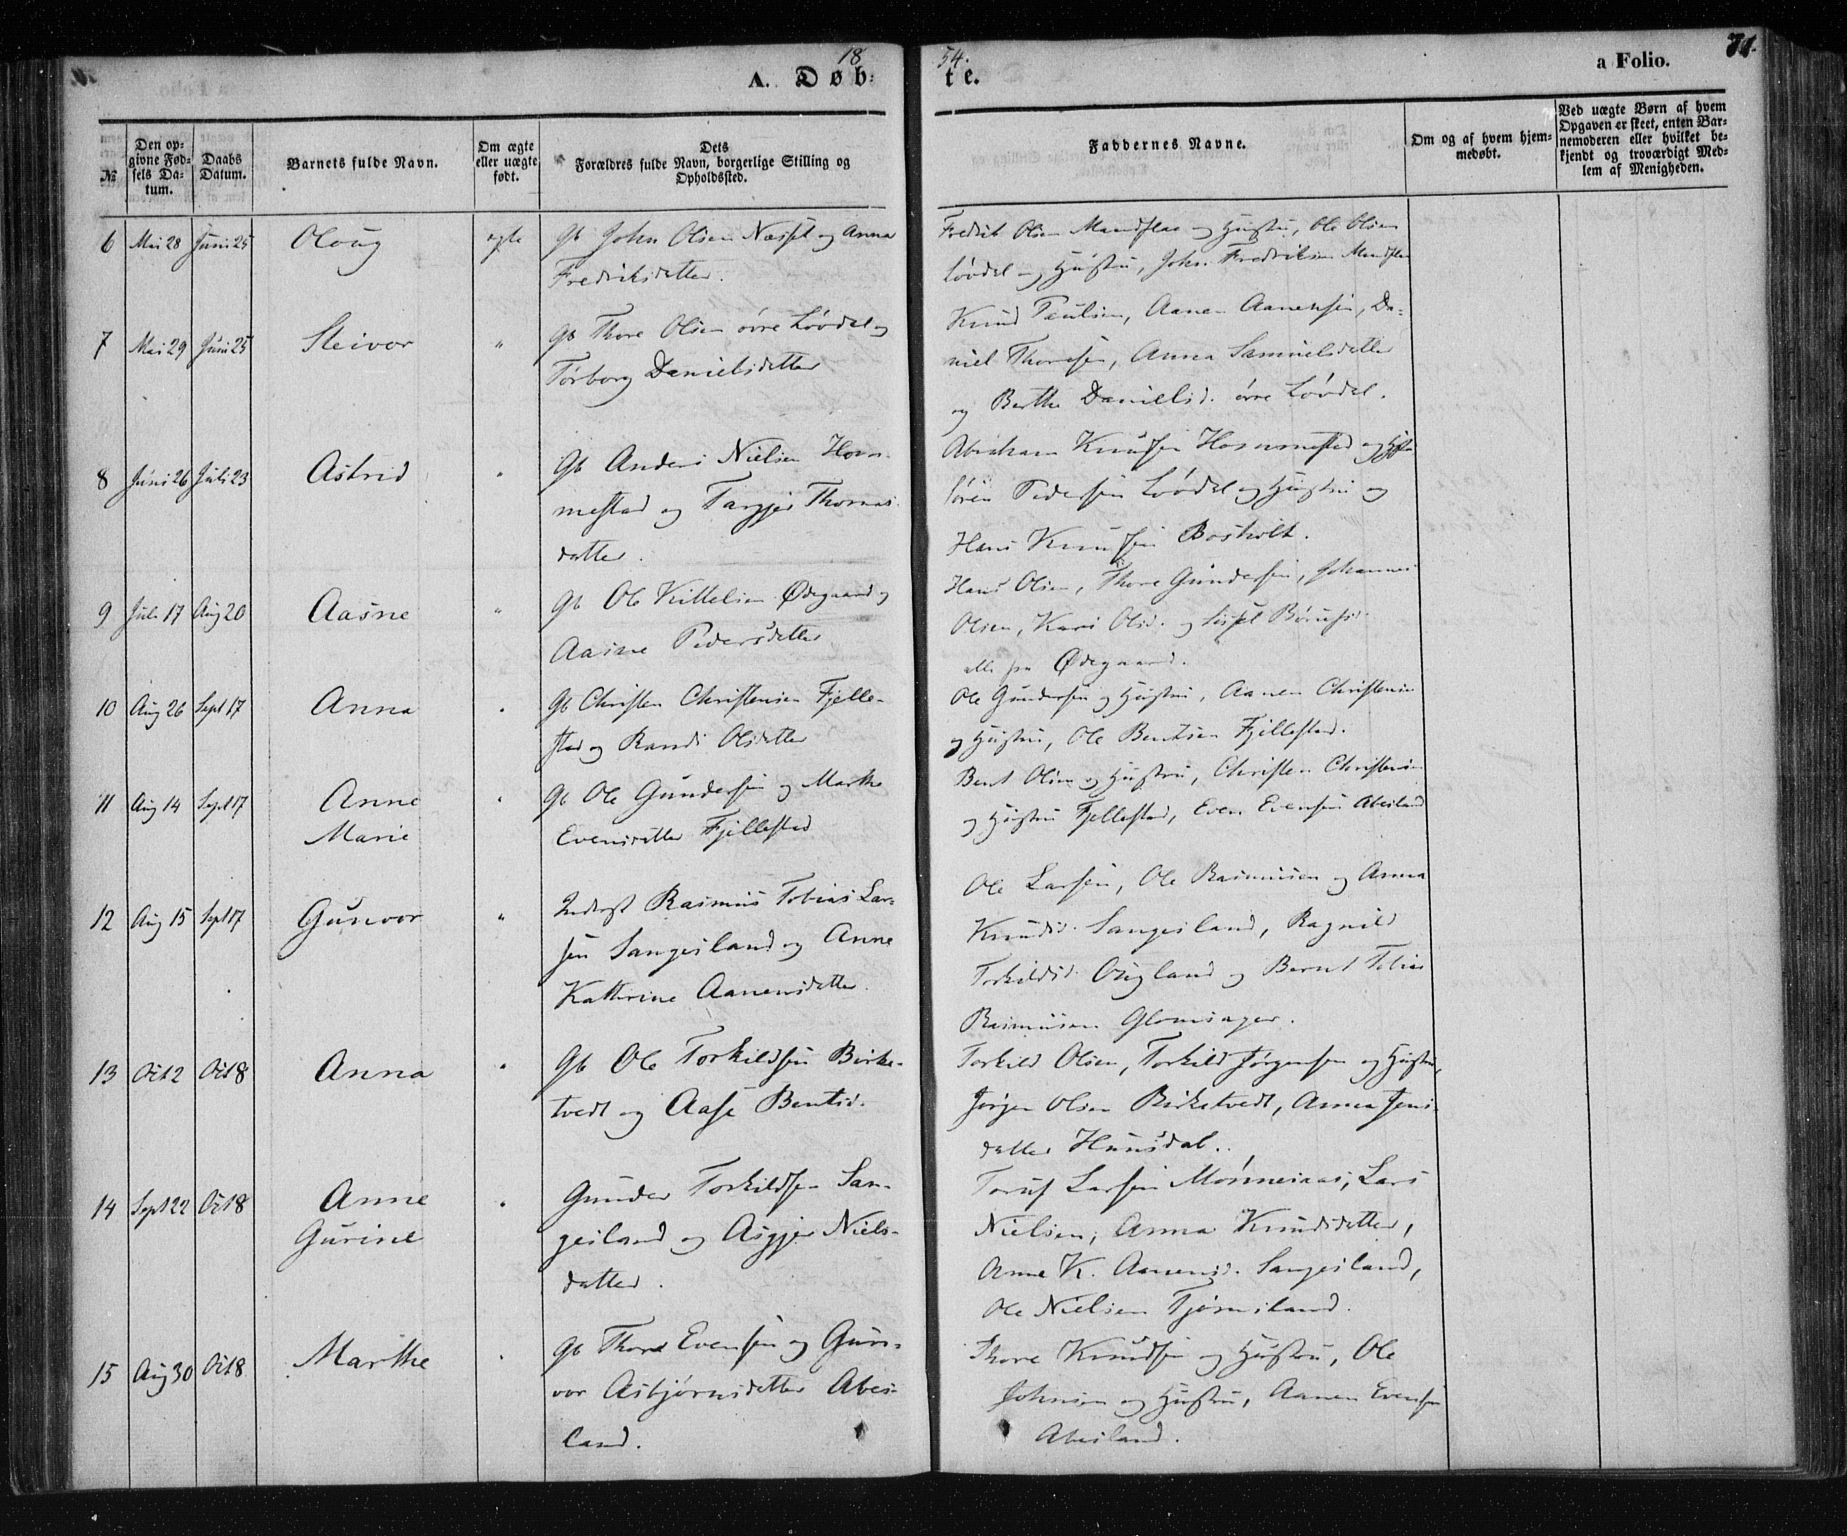 1854.
A. Døbte.
a Folio. 71.
№
Den opgivne Fødsels Datum.
Daabs Datum.
Barnets fulde Navn.
Om ægte eller uægte født.
Dets Forældres fulde Navn, borgerlige Stilling og Opholdssted.
Faddernes Navne.
Om og af hvem hjemmedøbt.
Ved uægte Børn af hvem Opgaven er skeet, enten Barnemoderen eller hvilket bekjendt og troværdigt Medlem af Menigheden.
6 Mai 28 Juni 25 Oloug ægte Gb John Olsen Næsset og Anna
Fredriksdatter.
Fredrik Olsen Mandflaa og Hustru, Ole Olsen
Løvdal og Hustru, John Fredriksen Mandflaa
7 Mai 29 Juni 25 Steivor " Gb Thore Olsen øvre Løvdal og
Torborg Danielsdatter
Knud Paulsen, Aanen Aanensen, Da-
niel Thoresen, Anna Samuelsdatter
og Berthe Danielsd. øvre Løvdal.
8 Juni 26 Juli 23 Astrid " Gb Anders Nielsen Horn-
mestad og Targjer Thomas-
datter.
Abraham Knudsen Hornmestad og Hstr
Søren Pedersen Løvdal og Hustru og
Hans Knudsen Bosholt.
9 Juli 17 Aug 20 Aasne " Gb Ole Kittelsen Ødegaard og
Aasne Pedersdatter
Hans Olsen, Thore Gundersen, Johannes
Olsen, Kari Olsd. og Sissel
alle fra Ødegaard.
10 Aug 26 Sept 17 Anna " Gb Christen Christensen Fjelle-
stad og Randi Olsdatter
Ole Gundersen og Hustru, Aanen Christensen
og Hustru, Ole Bentsen Fjellestad.
11 Aug 14 Sept 17 Anne
Marie " Gb Ole Gundersen og Marthe
Evensdatter Fjellestad
Bent Olsen og Hustru, Christen Christensen
og Hustru Fjellestad, Even Evensen Abesland
12 Aug 15 Sept 17 Gunvor " Inderst Rasmus Tobias Lar-
sen Sangesland og Anne
Kathrine Aanensdatter.
Ole Larsen, Ole Rasmusen og Anna
Knudsd. Sangesland, Ragnild
Torkildsd. Ougland og Bernt Tobias
Rasmusen Glomsager.
13 Oct 2 Oct 8 Anna " Gb Ole Torkildsen Birke-
tvedt og Aase Bentsd.
Torkild Olsen, Torkild Jørgensen og Hustru,
Jørgen Olsen Birketvedt, Anna Jens-
datter Hunsdal.
14 Sept 22 Oct 8 Anne
Gurine " Gunder Torkildsen San-
gesland og Asgjer Niels-
datter.
Larsen Lars
Nielsen, Anna Knudsdatter,
Anne K. Aanensd. Sangesland,
Ole Nielsen Tjømsland.
15 Aug 30 Oct 8 Marthe " Gb Thore Evensen og Gun-
vor Asbjørnsdatter Abes-
land.
Thore Knudsen og Hustru, Ole
Johnsen og Hustru, Aanen Evensen
Abesland.